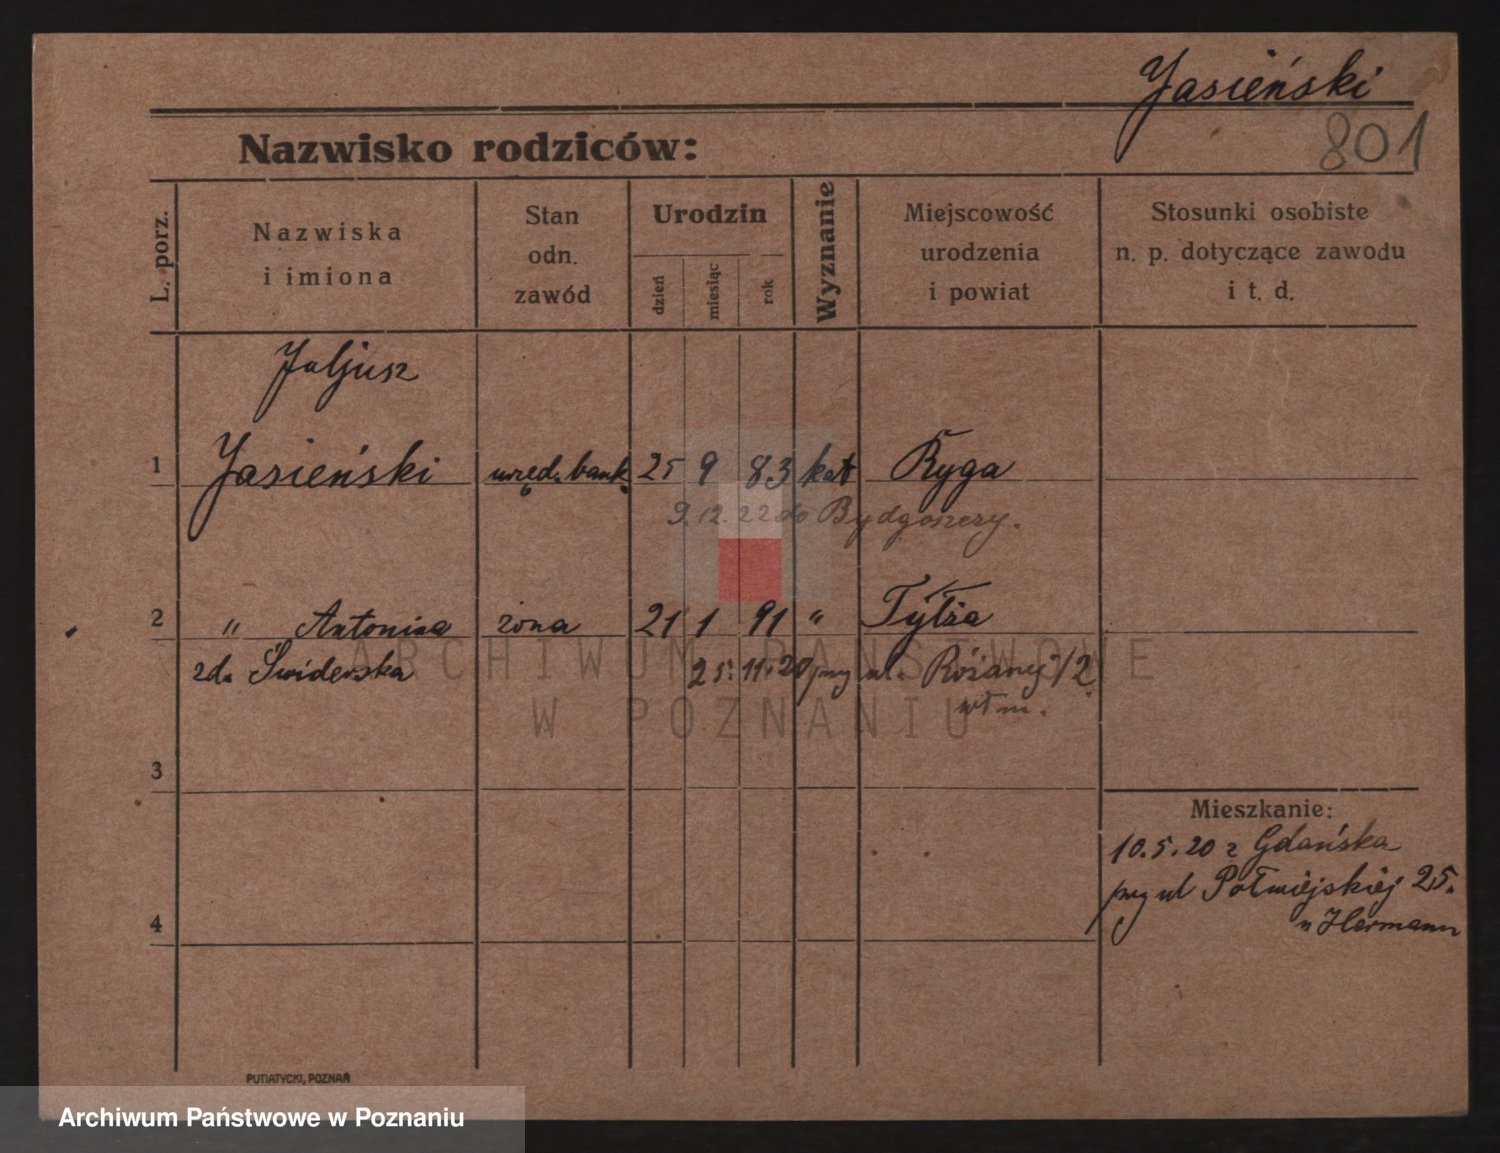 Jasieński
801
Nazwisko rodziców:
L. porz.
Nazwiska
i imiona
Stan
odn.
zawód
Urodzin
dzień
miesiąc
rok
Wyznanie
Miejscowość
urodzenia
i powiat
Stosunki osobiste
n. p. dotyczące zawodu
i t. d.
Juljusz
1 Jasieński uręd. bank. 25 9 83 kat Ryga
9.12.22 do Bydgoszczy.
2 " Antonina żona 21 1 91 " Tylża
zd. Świderska 25.11.20 przy ul. Różanej 12
3
Mieszkanie:
10.5.20 z Gdańska
przy ul Półwiejskiej 25.
u Hermann
4
ARCHIWUM PAŃSTWOWE
W POZNANIU
PUTIATYCKI, POZNAŃ
Archiwum Państwowe w Poznaniu